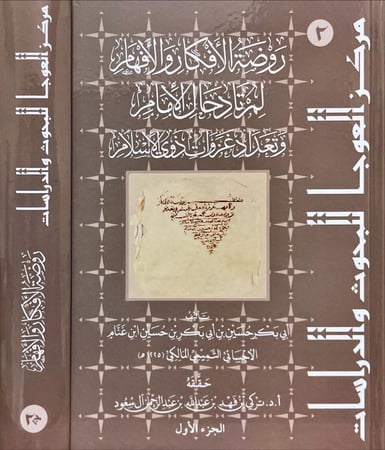 مركز العوجا للبحوث والدراسات
٢
روضة الأفكار والأفهام
لمرتاد حال الإمام
وتعداد غزوات ذوي الإسلام
تأليف
أبي بكر حسين بن أبي بكر بن حسين ابن غنام
الأحسائي التميمي المالكي (١٢٢٥ھ)
حققه
أ.د. تركي بن فهد بن عبدالله بن عبدالرحمن آل سعود
الجزء الأول
مركز العوجا للبحوث والدراسات
روضة الأفكار والأفهام